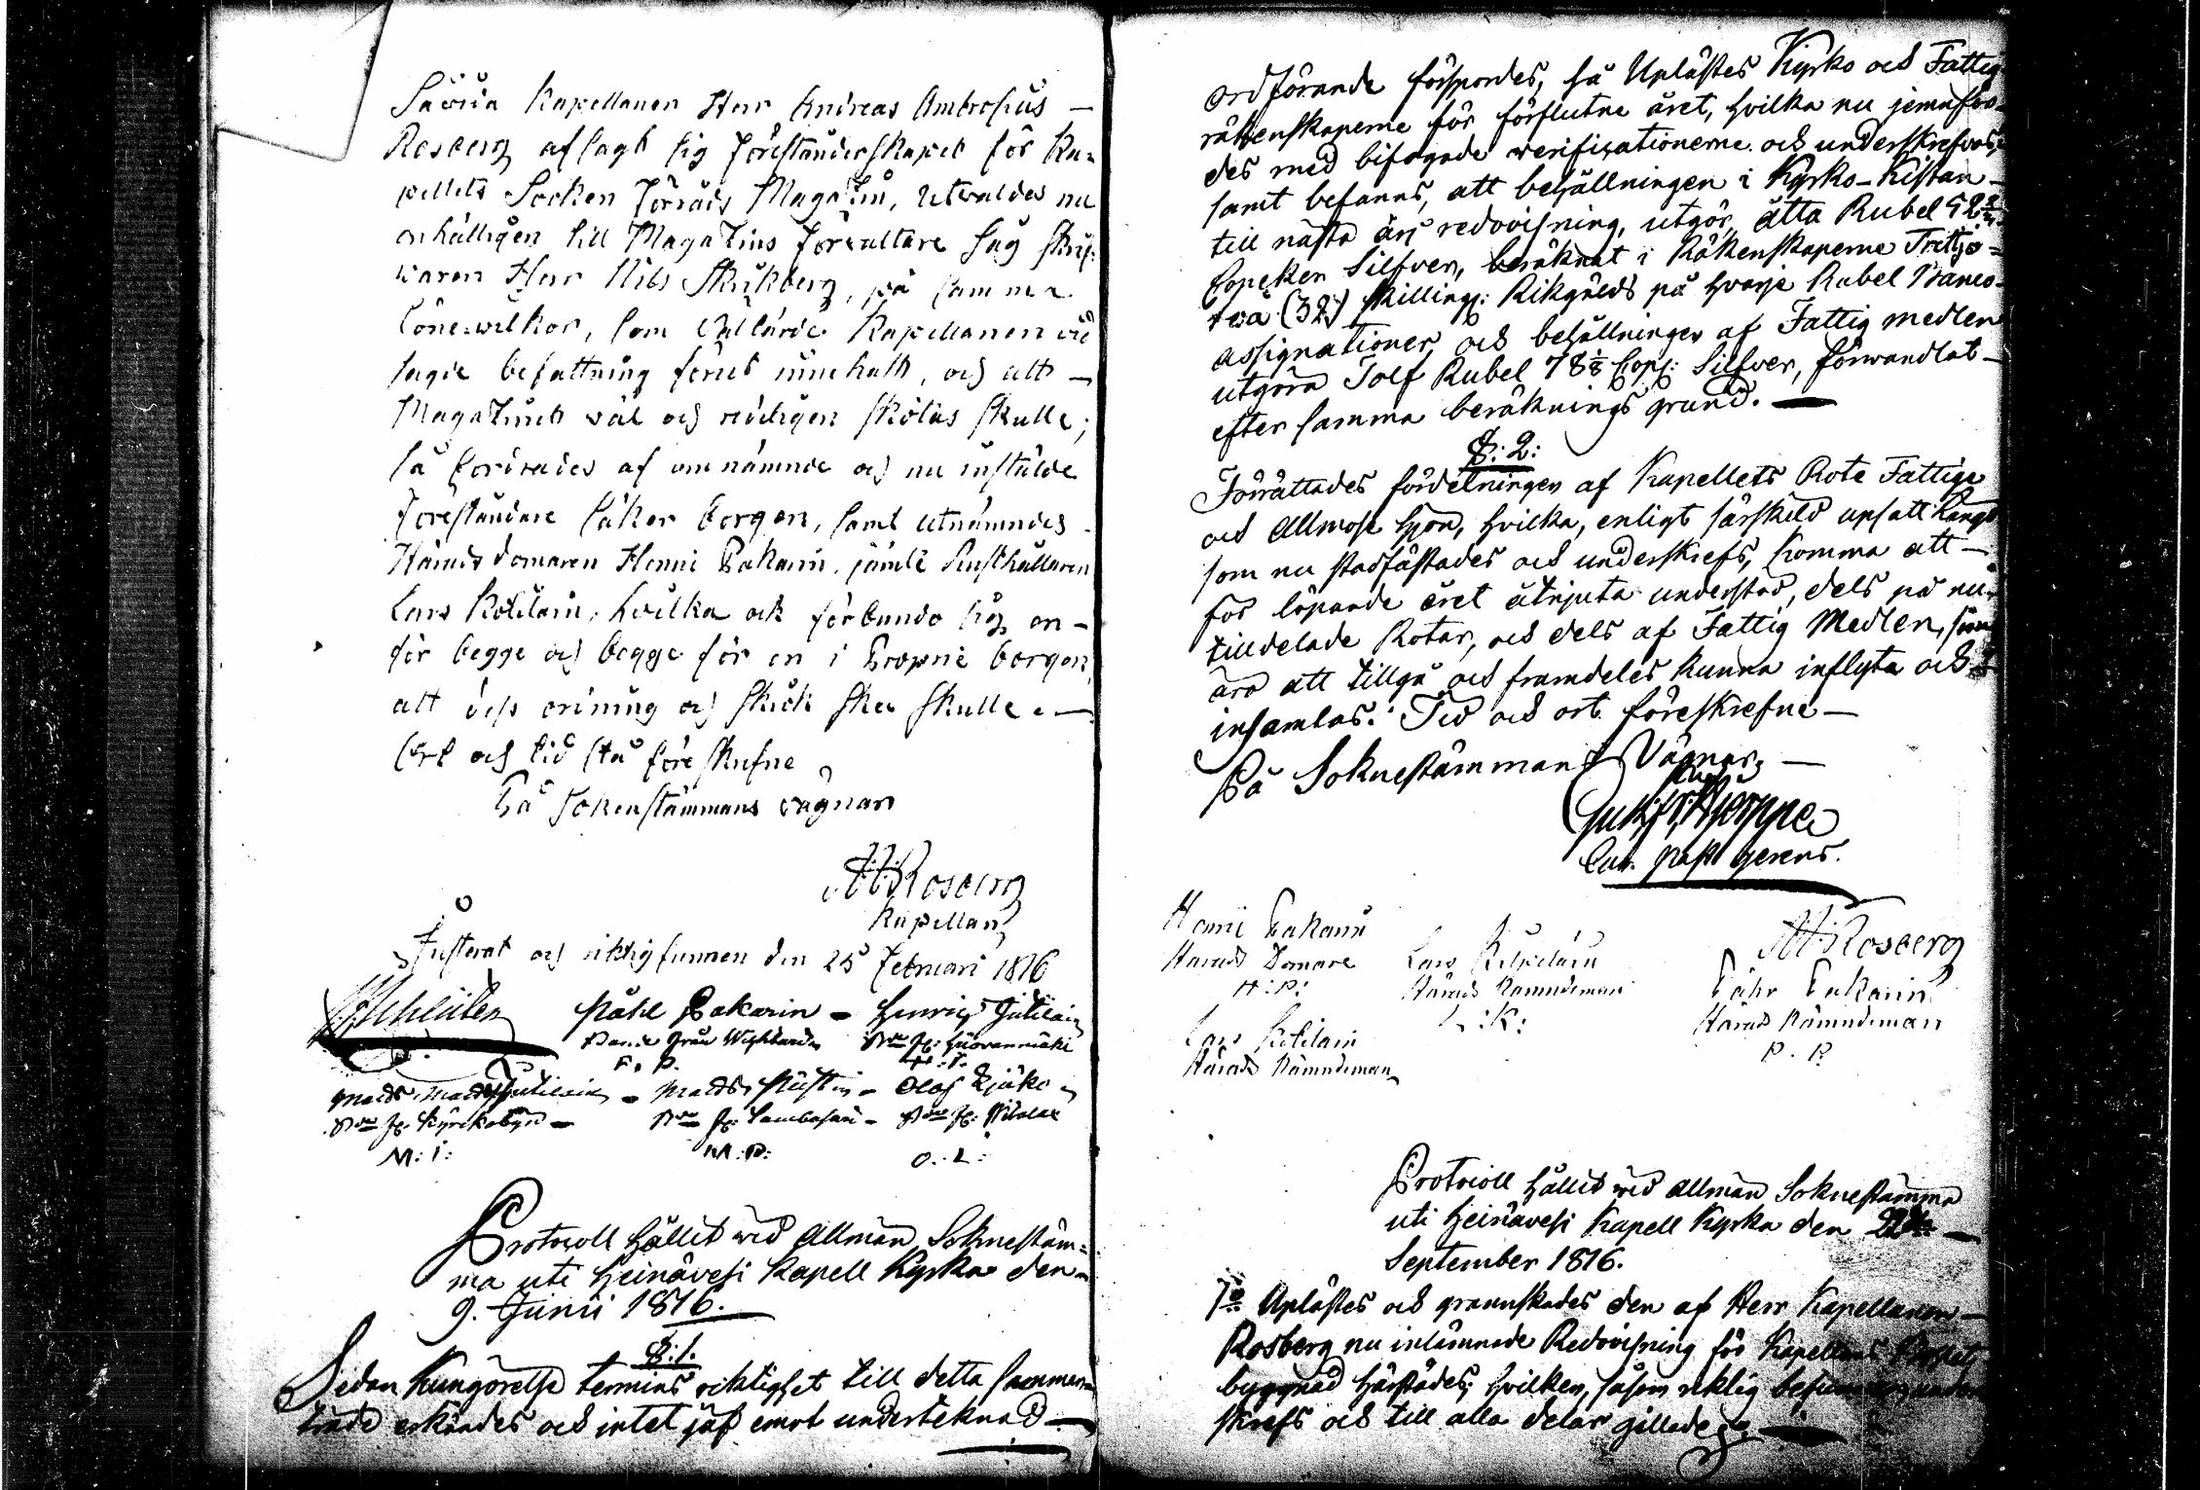 Såvida Kapellanen Herr Andreas Ambrosius —
Rosberg afsagt sig Föreståndarskapet för Ka=
pellets Socken Förråds Magazin, utvaldes nu
enhälligen till Magazins förvaltare Sågskrif=
waren Herr Nils
lönevilkor, som Vällärde Kapellanen vid
sagde befattning förut innehaft, och att —
Magazinet väl och redeligen skötas skulle;
så fordrades af omnämnde och nu instälde
Föreståndare säker borgen, samt utnämndes
Härads domaren Henric Pakarin, jämte
Lars Kotilain, hvilka ock förbundo sig en —
för begge och begge för en i Proprie borgen,
att dess ordning och skick ske skulle. —
Ort och tid stå föreskrefne
På Sokenstämmans vägnar
Rosberg
Kapellan
Justerat och riktig funnen den 25 Februari 1816
Påhl Pakarin — Henrich Jutilain
F. P.
H: J.
Matts Jutilain — Matts — Olof
Kyrkobyn —
M: J: M: P: O: L:
Protocoll hållit vid allmän Soknestäm=
ma uti Heinävesi Kapell Kyrka den
9. Junii 1816.
§: 1.
Sedan Kungörelse termins riktighet till detta samman=
träde erkändes och intet jäf emot underteknad —
ordförande förspordes, så Uplästes Kyrko och Fattig
räkenskaperne för förflutne året, hvilka nu jemnför=
des med bifogade verificationerne och underskrefvos;
samt befanns, att behållningen i Kyrko-Kistan —
till nästa års redovisning, utgör, åtta Rubel 92
Copeker Silfver, beräknat i Räkenskaperne Trettjo=
två (32) skilling: Rikgälds på hvarje Rubel Banco
assignationer och behållningen af Fattig medlen
utgöra Tolf Rubel 78 1/8 Cop: Silfver, förvandlat —
efter samma beräknings grund. —
§: 2:
Förrättades fördelningen af Kapellets Rote Fattige
och Allmose hjon, hvilka, enligt särskild upsatt längd
som nu stadfästades och underskrefs, komma att —
för löpande året åtnjuta understöd, dels på nu
tilldelade Rotar, och dels af Fattig Medlen, som
äro att tillgå och framdeles kunna inflyta och
insamlas. Tid och ort föreskrefne —
På Soknestämmans Vägnar, —
Cur. past. gerens.
Henric Pakarin
Härads Domare
H: P:
Lars
Härads Nämndeman
L: K:
Rosberg
Påhr Pakarin
Härads Nämndeman
P. P.
Lars Kotilain
Härads Nämndeman
Protocoll hållit vid allmän Soknestämma
uti Heinävesi Kapell Kyrka den 22
September 1816.
1o Uplästes och granskades den af Herr Kapellanen —
Rosberg nu inlämnade Redovisning för Kapellans
byggnad härstädes; hvilken, såsom riktig
skrefs och till alla delar gillades. —